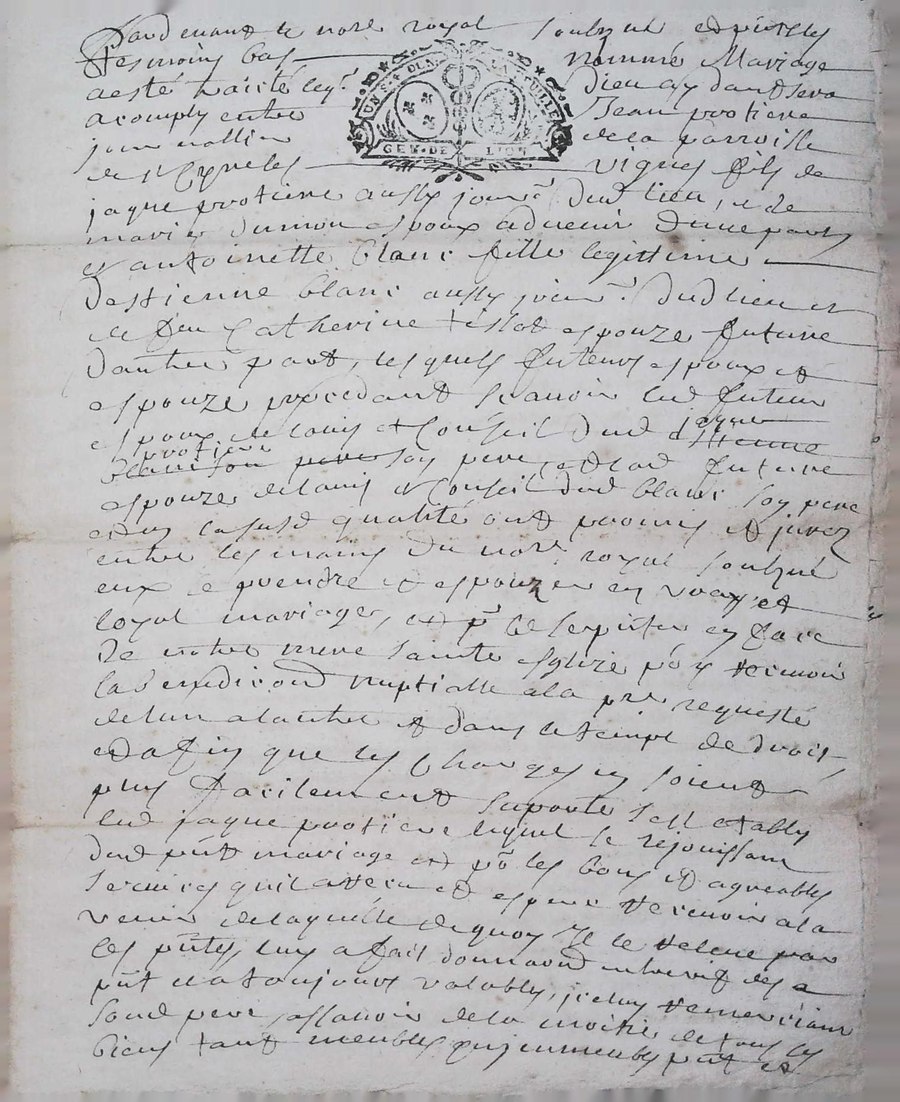 Pardevant le nore royal soubzné et présls
tesmoins bas nommés Mariage
a esté traicté leqt. dieu aydant sera
acomply entre Jean protiere
jour vallin de la parroisse
de st Cyr les vignes fils de
jaque protiere aussy jour.r dud lieu, et de
marie dumon espoux advenir d'une part
et antoinette blanc fille legittime
destienne blanc aussy jour.r dud lieu et
de feu Catherine tissot espouze future
d'autre part, lesquels futeurs espoux et
espouze procedant scavoir led futeur
espoux de lauis et Conseil dud jaque estienne
protiere blanc son pere son pere, et lad future
espouze de lauis et Conseil dud blanc son pere
et en la susd qualité ont promis et jurez
entre les mains du nore royal soubzné
eux se prendre et espouzer en vray et
loyal mariage, et pr ce se pnter en face
de notre mere sainte esglize pour recevoir
la benediçon nuptialle a la pre requeste
de lun a lautre et dans le temps de droit
et afin que les charges en soient
plus facilement suporté sest estably
led jaque protiere lequel se rejouissant
dud pnt mariage et pr les bons et agreables
services quil a receu et espere recevoir a la
venir de laquelle de quoy il le releve par
les pntes, luy a fait donnaon entre vifs des a
pnt et a toujours valable, iceluy remerciant
sond pere, assavoir de la moitié de tous les
biens tant meubles qu'immeubles pnt et
UN S. 4 DEN. LA FEUILLE
GEN. DE LION